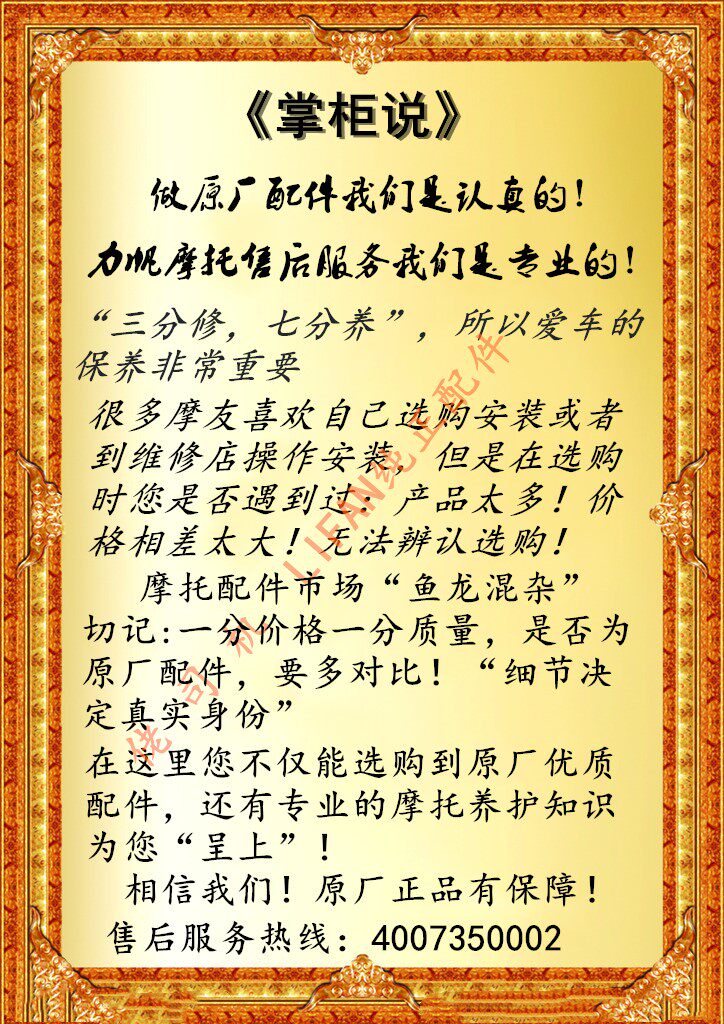 《掌柜说》
做原厂配件我们是认真的！
力帆摩托售后服务我们是专业的！
“三分修，七分养”，所以爱车的
保养非常重要
很多摩友喜欢自己选购安装或者
到维修店操作安装，但是在选购
时您是否遇到过：产品太多！价
格相差太大！无法辨认选购！
摩托配件市场“鱼龙混杂”
切记:一分价格一分质量，是否为
原厂配件，要多对比！“细节决
定真实身份”
在这里您不仅能选购到原厂优质
配件，还有专业的摩托养护知识
为您“呈上”！
相信我们！原厂正品有保障！
售后服务热线：4007350002
佬司机 LIFAN纯正配件